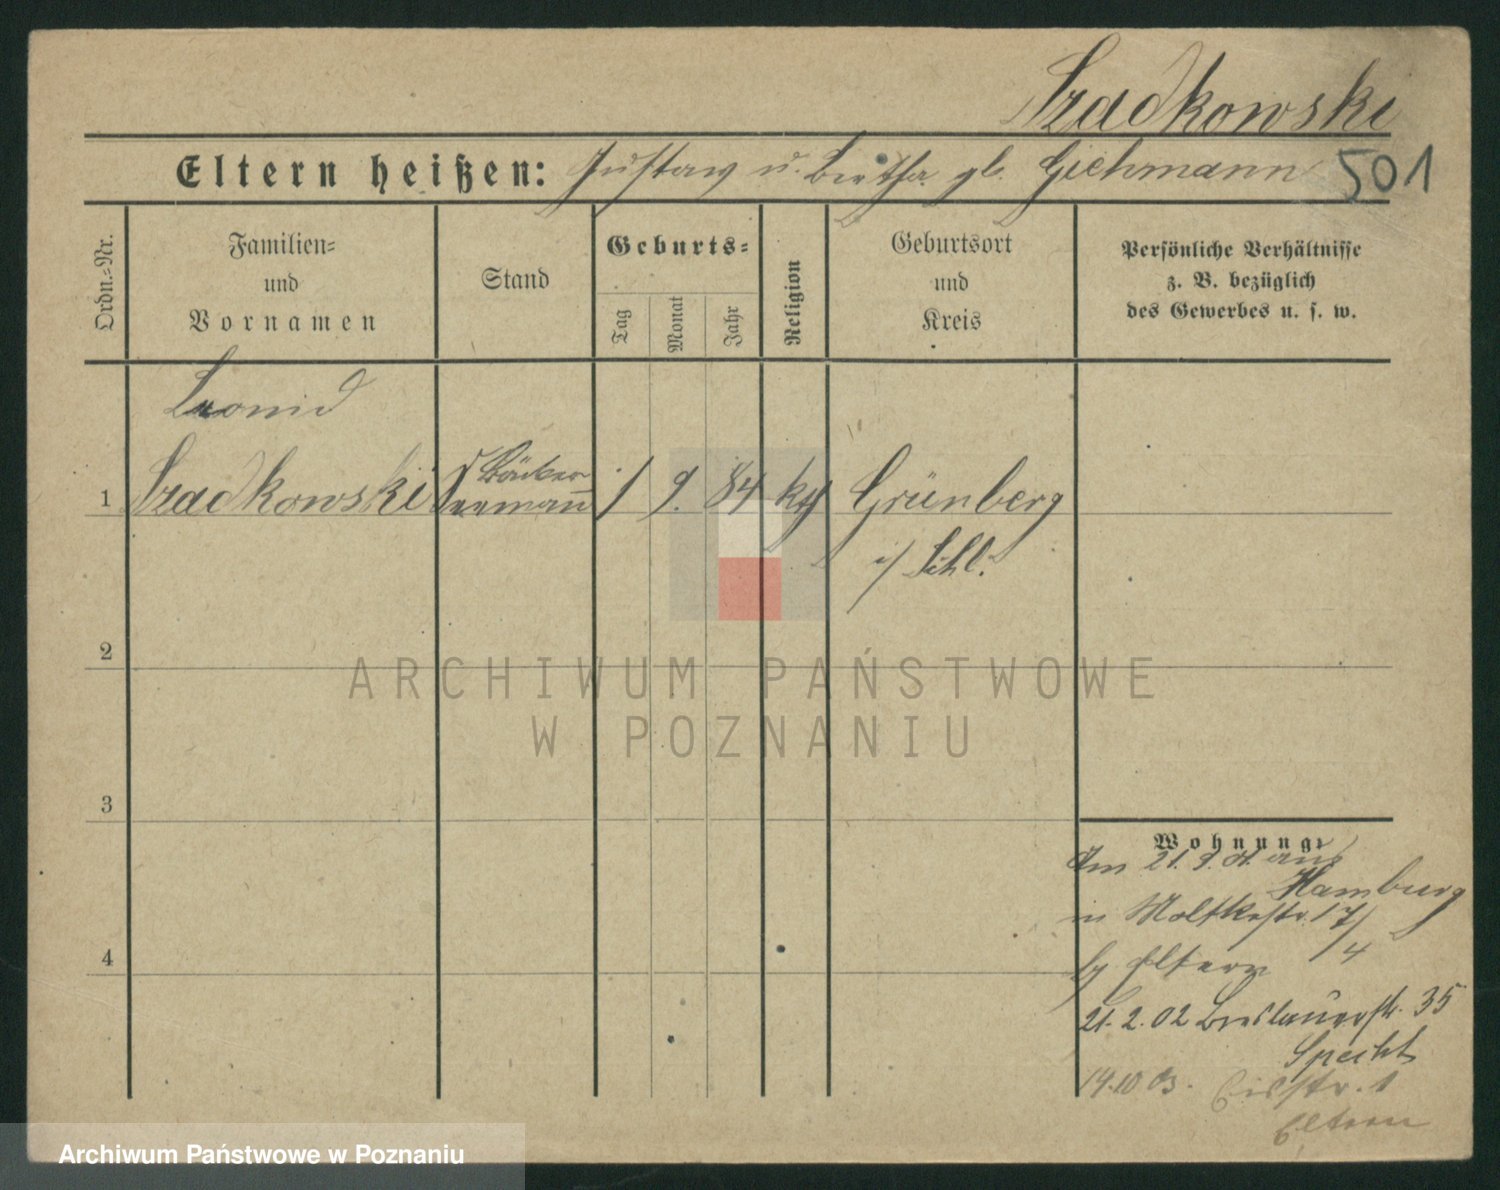 Szadkowski
Eltern heißen: Gustav u. Bertha gb. Giehmann 501
Ordn.=Nr.
Familien=
und
Vornamen
Stand
Geburts=
Tag
Monat
Jahr
Religion
Geburtsort
und
Kreis
Persönliche Verhältnisse
z. B. bezüglich
des Gewerbes u. s. w.
Leonid
1 Szadkowski
Bäcker
Seemann
1 9. 84 kth
Grünberg
i/ Schl.
2
3
4
Wohnung:
Am 21. 9. 01. aus
Hamburg
in Moltkestr. 17/
b/ Eltern 14
21. 2. 02 Breslauerstr. 35
Specht
14.10 03. Eichstr. 1
Eltern
ARCHIWUM PAŃSTWOWE
W POZNANIU
Archiwum Państwowe w Poznaniu